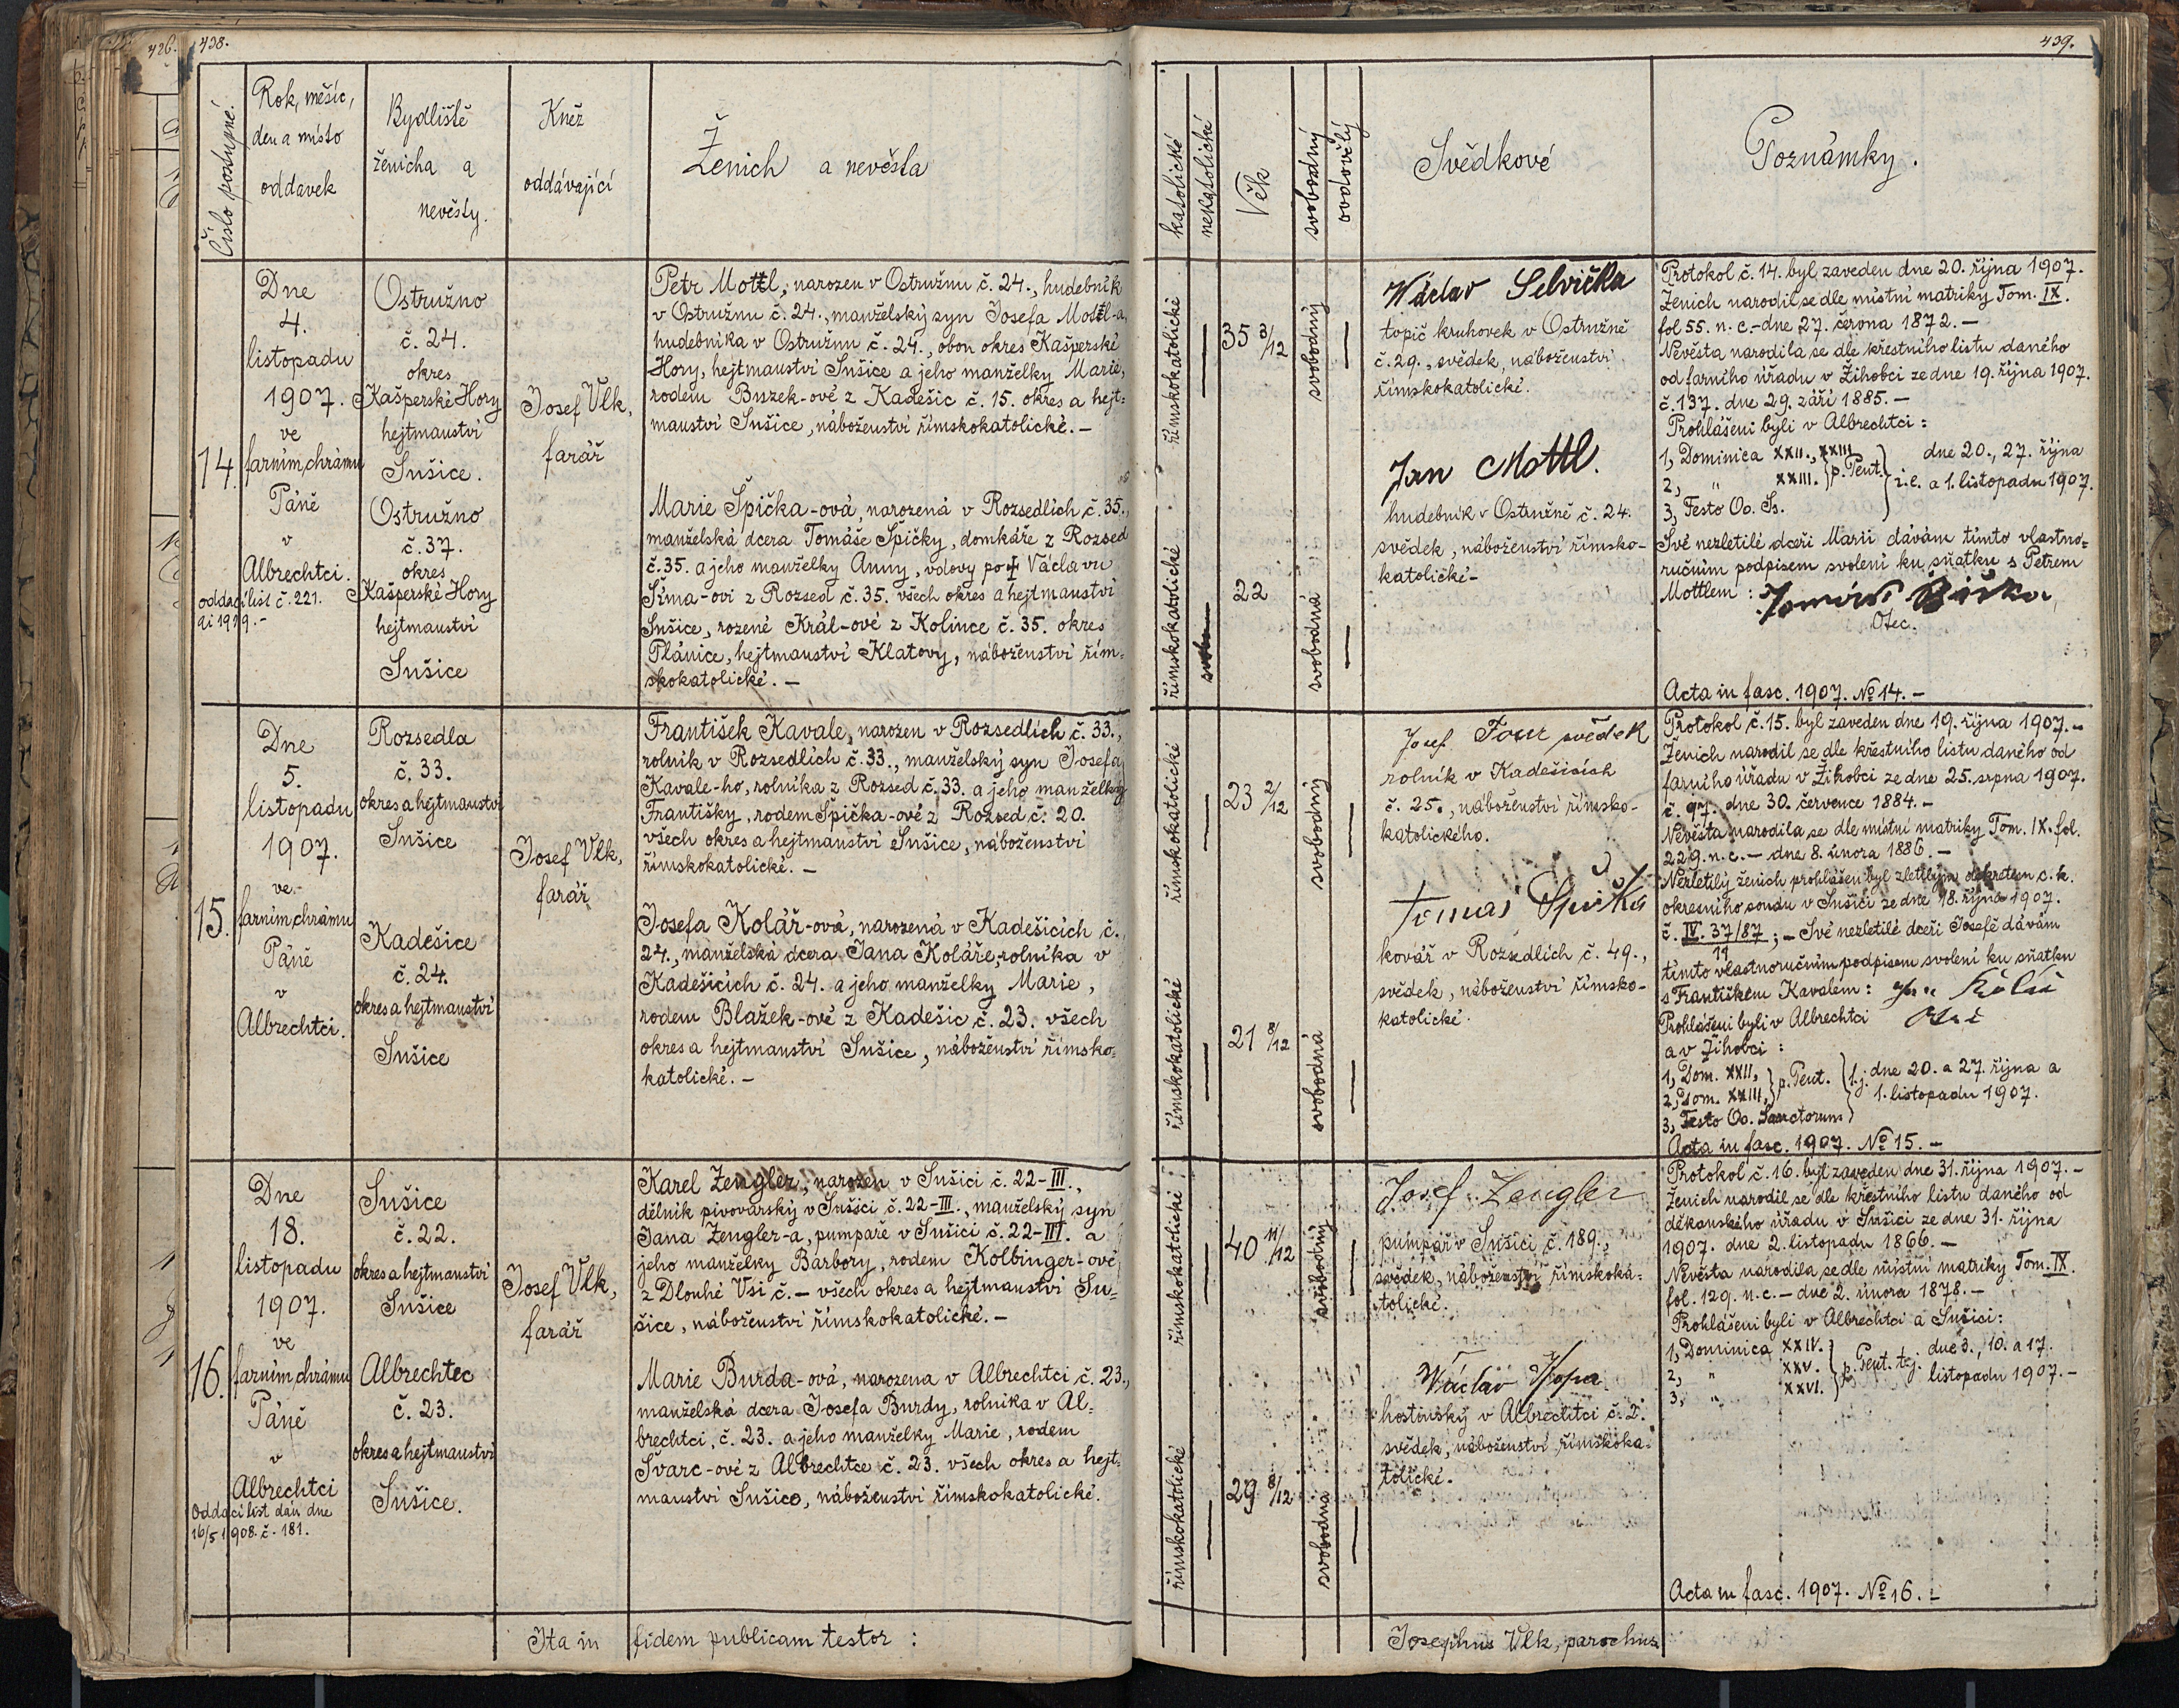 426.
438.
Číslo postupné.
Rok, měsíc,
den a místo
oddavek
Bydliště
ženicha a
nevěsty.
Kněž
oddávající
Ženich a nevěsta
14.
Dne
4.
listopadu
1907.
ve
farním chrámu
Páně
v
Albrechtci.
oddací list č. 221.
Ostružno
č. 24.
okres
Kašperské Hory
hejtmanství
Sušice.
Ostružno
č. 37.
okres
Kašperské Hory
hejtmanství
Sušice
Josef Vlk,
farář
Petr Mottl, narozen v Ostružnu č. 24., hudebník
v Ostružnu č. 24., manželský syn Josefa Mottl-a,
hudebníka v Ostružnu č. 24., obou okres Kašperské
Hory, hejtmanství Sušice a jeho manželky Marie,
rodem Buzek-ové z Kadešic č. 15. okres a hejt=
manství Sušice, náboženství římskokatolické. –
Marie Špička-ová, narozená v Rozsedlích č. 35.,
manželská dcera Tomáše Špičky, domkáře z Rozsed
č. 35. a jeho manželky Anny, vdovy po † Václavu
Šíma-ovi z Rozsed č. 35. všech okres a hejtmanství
Sušice, rozené Král-ové z Kolince č. 35. okres
Plánice, hejtmanství Klatovy, náboženství řím=
skokatolické. –
15.
Dne
5.
listopadu
1907.
ve
farním chrámu
Páně
v
Albrechtci.
Rozsedla
č. 33.
okres a hejtmanství
Sušice
Kadešice
č. 24.
okres a hejtmanství
Sušice
Josef Vlk,
farář
František Kavale, narozen v Rozsedlích č. 33.,
rolník v Rozsedlích č. 33., manželský syn Josefa
Kavale-ho, rolníka z Rozsed č. 33. a jeho manželky
Františky, rodem Špička-ové z Rozsed č. 20.
všech okres a hejtmanství Sušice, náboženství
římskokatolické. –
Josefa Kolář-ová, narozená v Kadešicích č.
24., manželská dcera Jana Koláře, rolníka v
Kadešicích č. 24. a jeho manželky Marie,
rodem Blažek-ové z Kadešic č. 23. všech
okres a hejtmanství Sušice, náboženství římsko=
katolické. –
16.
Dne
18.
listopadu
1907.
ve
farním chrámu
Páně
v
Albrechtci
Oddací list dán dne
16/5 1908. č. 181.
Sušice
č. 22.
okres a hejtmanství
Sušice
Albrechtec
č. 23.
okres a hejtmanství
Sušice.
Josef Vlk,
farář
Karel Zengler, narozen v Sušici č. 22-III.,
dělník pivovarský v Sušici č. 22-III., manželský syn
Jana Zengler-a, pumpaře v Sušici č. 22-III. a
jeho manželky Barbory, rodem Kolbinger-ové
z Dlouhé Vsi č. – všech okres a hejtmanství Su=
šice, náboženství římskokatolické. –
Marie Burda-ová, narozena v Albrechtci č. 23.,
manželská dcera Josefa Burdy, rolníka v Al=
brechtci, č. 23. a jeho manželky Marie, rodem
Švarc-ové z Albrechtce č. 23. všech okres a hejt=
manství Sušice, náboženství římskokatolické.
Ita in fidem publicam testor :
439.
katolické
nekatolické
Věk
svobodný
ovdovělý
Svědkové
Poznámky.
římskokatolické
35 3/12
svobodný
římskokatolické
22
svobodná
Václav Selvička
topič kruhovek v Ostružně
č. 29., svědek, náboženství
římskokatolické.
Jan Mottl.
hudebník v Ostružně č. 24.
svědek, náboženství římsko-
katolické-
Protokol č. 14. byl zaveden dne 20. října 1907.
Ženich narodil se dle místní matriky Tom. IX.
fol 55. n. c. - dne 27. června 1872. –
Nevěsta narodila se dle křestního listu daného
od farního úřadu v Žihobci ze dne 19. října 1907.
č. 137. dne 29. září 1885. –
Prohlášeni byli v Albrechtci :
1, Dominica XXII., XXIII
2, " XXIII. p. Pent. dne 20., 27. října
3, Festo Oo. Ss. i.e. a 1. listopadu 1907.
Své nezletilé dceři Marii dávám tímto vlastno=
ručním podpisem svolení ku sňatku s Petrem
Mottlem :
Otec.
Acta in fasc. 1907. No 14. –
římskokatolické
23 2/12
svobodný
římskokatolické
21 8/12
svobodná
Josef svědek
rolník v Kadešicích
č. 25., náboženství římsko-
katolického.
Tomáš Špička
kovář v Rozsedlích č. 49.,
svědek, náboženství římsko-
katolické.
Protokol č. 15. byl zaveden dne 19. října 1907. –
Ženich narodil se dle křestního listu daného od
farního úřadu v Žihobci ze dne 25. srpna 1907.
č. 97. dne 30. července 1884. –
Nevěsta narodila se dle místní matriky Tom. IX. fol.
229. n. c. – dne 8. února 1886. –
Nezletilý ženich prohlášen byl zletilým dekretem c. k.
okresního soudu v Sušici ze dne 18. října 1907.
č. IV. 37/87 ; – Své nezletilé dceři Josefě dávám
19
tímto vlastnoručním podpisem svolení ku sňatku
s Františkem Kavalem :
Prohlášeni byli v Albrechtci
a v Žihobci :
1, Dom. XXII,
2, Dom. XXIII, p. Pent. t.j. dne 20. a 27. října a
3, Festo Oo. Sanctorum 1. listopadu 1907.
Acta in fasc. 1907. No 15. –
římskokatolické
40 11/12
svobodný
římskokatolické
29 8/12
svobodna
Josef Zengler
pumpař v Sušici č. 189.,
svědek, náboženství římskoka=
tolické.
Václav
hostinský v Albrechtci č. 2.
svědek, náboženství římskoka-
tolické.
Protokol č. 16. byl zaveden dne 31. října 1907. –
Ženich narodil se dle křestního listu daného od
děkanského úřadu v Sušici ze dne 31. října
1907. dne 2. listopadu 1866. –
Nevěsta narodila se dle místní matriky Tom. IX.
fol. 129. n. c. – dne 2. února 1878. –
Prohlášeni byli v Albrechtci a Sušici:
1, Dominica XXIV.
2, " XXV. p. Pent. t.j. dne 3., 10. a 17.
3, " XXVI. listopadu 1907. –
Acta in fasc. 1907. No 16. –
Josephus Vlk, parochus